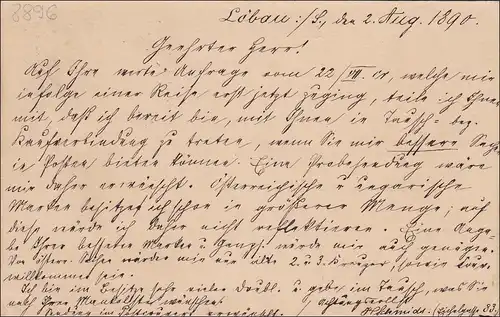 8896
Löbau i/S., den 2. Aug. 1890.
Geehrter Herr!
Auf Ihre werte Anfrage vom 22/VII. cr, welche mir
infolge einer Reise erst jetzt zuging, teile ich Ihnen
mit, daß ich bereit bin, mit Ihnen in Tausch- bez.
Kaufverbindung zu treten, wenn Sie mir bessere Sachen
in Posten bieten können. Eine Probesendung wäre
mir daher erwünscht. Österreichische u ungarische
Marken besitze ich schon in größerer Menge; auf
diese würde ich daher nicht reflektieren. Eine Anga-
be Ihrer besseren Marken u. würde mir auch genügen.
Von österr. würden mir nur alte 2. u. 3. Kreuzer, sowie
willkommen sein.
Ich bin im Besitze sehr vieler Doubl. u. gebe im Tausch, was Sie
nach Ihrer Mankoliste wünschen.
Achtungsvollst
33.